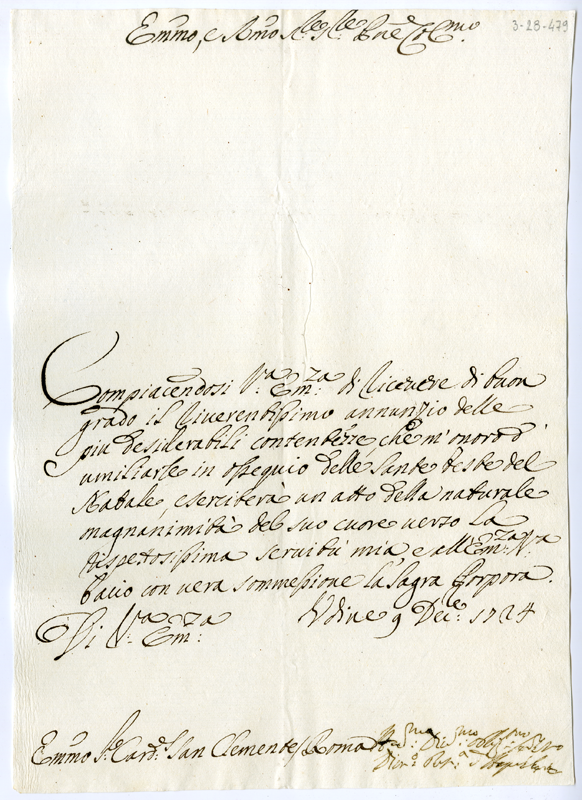 3-28-479
Emmo, e Rmo Sre Sre Pne Colmo
Compiacendosi Va. Emza. di ricevere di buon
grado il riverentissimo annunzio delle
più desiderabili contentezze, che m'onoro d'
umiliarle in ossequio delle Sante feste del
Natale, eserciterà un atto della naturale
magnanimità del suo cuore verso la
rispettosissima servitù mia, e all'Emza. Vra
bacio con vera sommessione la Sagra Porpora.
Di Va. Emza. Udine 9 Dece. 1724
Emmo Sre Card. San Clemente Roma